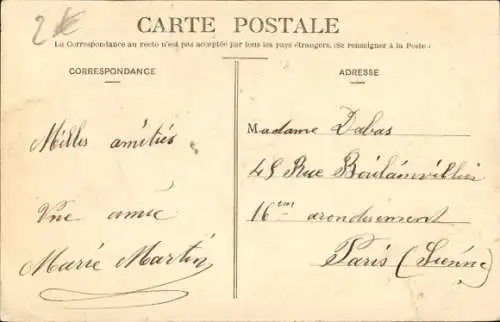 2€
CARTE POSTALE
La Correspondance au recto n'est pas acceptée par tous les pays étrangers. (Se renseigner à la Poste.)
CORRESPONDANCE
Milles amitiés
Une amie
Marie Martin
ADRESSE
Madame Dabas
45 Rue Boulainvillier
16em arondisement
Paris (Seinne)